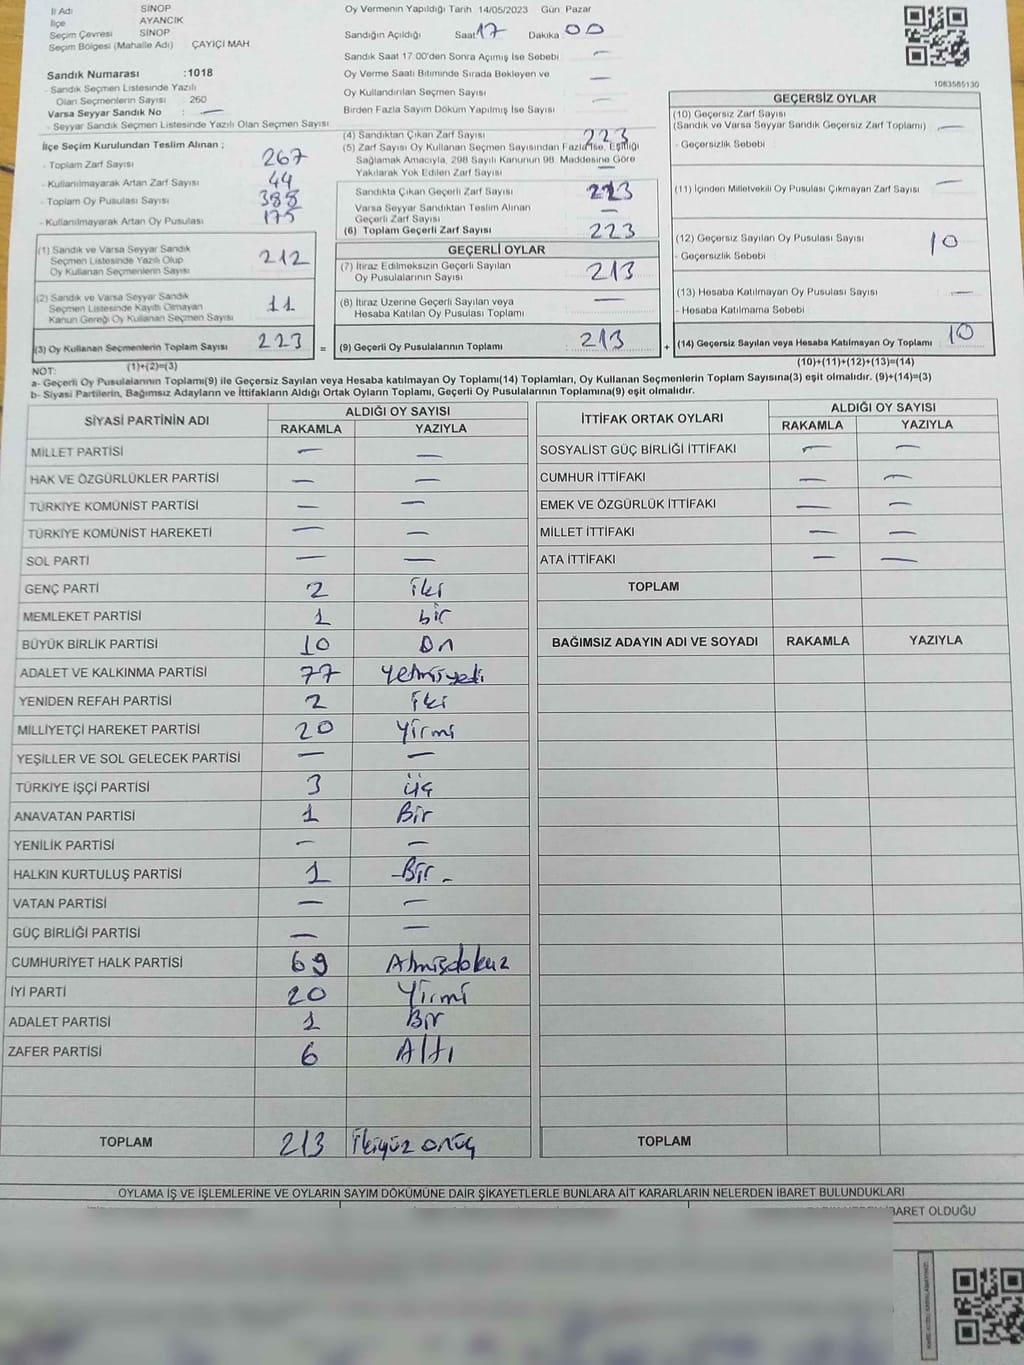 İl Adı SİNOP
İlçe AYANCIK
Seçim Çevresi SİNOP
Seçim Bölgesi (Mahalle Adı) ÇAYIÇI MAH
Sandık Numarası :1018
- Sandık Seçmen Listesinde Yazılı
Olan Seçmenlerin Sayısı : 260
Varsa Seyyar Sandık No : —
- Seyyar Sandık Seçmen Listesinde Yazılı Olan Seçmen Sayısı
İlçe Seçim Kurulundan Teslim Alınan ;
- Toplam Zarf Sayısı 267
- Kullanılmayarak Artan Zarf Sayısı 44
- Toplam Oy Pusulası Sayısı 388
- Kullanılmayarak Artan Oy Pusulası 175
(1) Sandık ve Varsa Seyyar Sandık
Seçmen Listesinde Yazılı Olup
Oy Kullanan Seçmenlerin Sayısı 212
(2) Sandık ve Varsa Seyyar Sandık
Seçmen Listesinde Kayıtlı Olmayan
Kanun Gereği Oy Kullanan Seçmen Sayısı 11
(3) Oy Kullanan Seçmenlerin Toplam Sayısı 223 =
(1)+(2)=(3)
Oy Vermenin Yapıldığı Tarih 14/05/2023 Gün Pazar
Sandığın Açıldığı Saat 17 Dakika 00
Sandık Saat 17:00'den Sonra Açılmış İse Sebebi —
Oy Verme Saati Bitiminde Sırada Bekleyen ve
Oy Kullandırılan Seçmen Sayısı —
Birden Fazla Sayım Döküm Yapılmış İse Sayısı —
(4) Sandıktan Çıkan Zarf Sayısı 223
(5) Zarf Sayısı Oy Kullanan Seçmen Sayısından Fazla İse, Eşitliği
Sağlamak Amacıyla, 298 Sayılı Kanunun 98. Maddesine Göre
Yakılarak Yok Edilen Zarf Sayısı —
Sandıkta Çıkan Geçerli Zarf Sayısı 223
Varsa Seyyar Sandıktan Teslim Alınan
Geçerli Zarf Sayısı —
(6) Toplam Geçerli Zarf Sayısı 223
GEÇERLİ OYLAR
(7) İtiraz Edilmeksizin Geçerli Sayılan
Oy Pusulalarının Sayısı 213
(8) İtiraz Üzerine Geçerli Sayılan veya
Hesaba Katılan Oy Pusulası Toplamı —
(9) Geçerli Oy Pusulalarının Toplamı 213 +
1083585130
GEÇERSİZ OYLAR
(10) Geçersiz Zarf Sayısı
(Sandık ve Varsa Seyyar Sandık Geçersiz Zarf Toplamı) —
- Geçersizlik Sebebi
(11) İçinden Milletvekili Oy Pusulası Çıkmayan Zarf Sayısı —
(12) Geçersiz Sayılan Oy Pusulası Sayısı 10
- Geçersizlik Sebebi
(13) Hesaba Katılmayan Oy Pusulası Sayısı —
- Hesaba Katılmama Sebebi
(14) Geçersiz Sayılan veya Hesaba Katılmayan Oy Toplamı 10
(10)+(11)+(12)+(13)=(14)
NOT:
a- Geçerli Oy Pusulalarının Toplamı(9) ile Geçersiz Sayılan veya Hesaba katılmayan Oy Toplamı(14) Toplamları, Oy Kullanan Seçmenlerin Toplam Sayısına(3) eşit olmalıdır. (9)+(14)=(3)
b- Siyasi Partilerin, Bağımsız Adayların ve İttifakların Aldığı Ortak Oyların Toplamı, Geçerli Oy Pusulalarının Toplamına(9) eşit olmalıdır.
SİYASİ PARTİNİN ADI ALDIĞI OY SAYISI
RAKAMLA YAZIYLA
MİLLET PARTİSİ — —
HAK VE ÖZGÜRLÜKLER PARTİSİ — —
TÜRKİYE KOMÜNİST PARTİSİ — —
TÜRKİYE KOMÜNİST HAREKETİ — —
SOL PARTİ — —
GENÇ PARTİ 2 iki
MEMLEKET PARTİSİ 1 bir
BÜYÜK BİRLİK PARTİSİ 10 On
ADALET VE KALKINMA PARTİSİ 77 yetmişyedi
YENİDEN REFAH PARTİSİ 2 iki
MİLLİYETÇİ HAREKET PARTİSİ 20 Yirmi
YEŞİLLER VE SOL GELECEK PARTİSİ — —
TÜRKİYE İŞÇİ PARTİSİ 3 üç
ANAVATAN PARTİSİ 1 Bir
YENİLİK PARTİSİ — —
HALKIN KURTULUŞ PARTİSİ 1 -Bir-
VATAN PARTİSİ — —
GÜÇ BİRLİĞİ PARTİSİ — —
CUMHURİYET HALK PARTİSİ 69 Atmışdokuz
İYİ PARTİ 20 Yirmi
ADALET PARTİSİ 1 Bir
ZAFER PARTİSİ 6 Altı
TOPLAM 213 İkiyüz onüç
İTTİFAK ORTAK OYLARI ALDIĞI OY SAYISI
RAKAMLA YAZIYLA
SOSYALİST GÜÇ BİRLİĞİ İTTİFAKI — —
CUMHUR İTTİFAKI — —
EMEK VE ÖZGÜRLÜK İTTİFAKI — —
MİLLET İTTİFAKI — —
ATA İTTİFAKI — —
TOPLAM
BAĞIMSIZ ADAYIN ADI VE SOYADI RAKAMLA YAZIYLA
TOPLAM
OYLAMA İŞ VE İŞLEMLERİNE VE OYLARIN SAYIM DÖKÜMÜNE DAİR ŞİKAYETLERLE BUNLARA AİT KARARLARIN NELERDEN İBARET BULUNDUKLARI
İBARET OLDUĞU